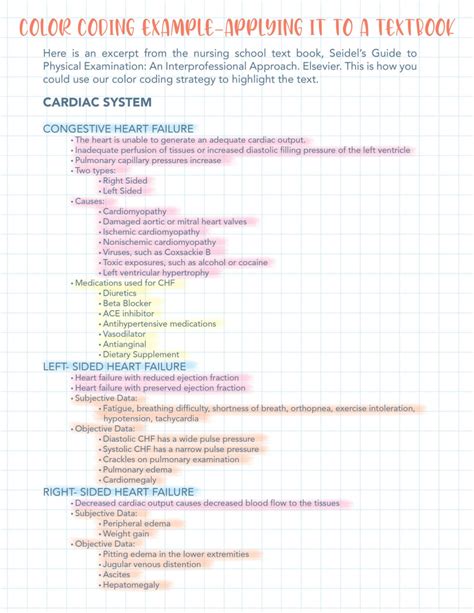 COLOR CODING EXAMPLE-APPLYING IT TO A TEXTBOOK
Here is an excerpt from the nursing school text book, Seidel's Guide to
Physical Examination: An Interprofessional Approach. Elsevier. This is how you
could use our color coding strategy to highlight the text.
CARDIAC SYSTEM
CONGESTIVE HEART FAILURE
• The heart is unable to generate an adequate cardiac output.
• Inadequate perfusion of tissues or increased diastolic filling pressure of the left ventricle
• Pulmonary capillary pressures increase
• Two types:
• Right Sided
• Left Sided
• Causes:
• Cardiomyopathy
• Damaged aortic or mitral heart valves
• Ischemic cardiomyopathy
• Nonischemic cardiomyopathy
• Viruses, such as Coxsackie B
• Toxic exposures, such as alcohol or cocaine
• Left ventricular hypertrophy
• Medications used for CHF
• Diuretics
• Beta Blocker
• ACE inhibitor
• Antihypertensive medications
• Vasodilator
• Antianginal
• Dietary Supplement
LEFT- SIDED HEART FAILURE
• Heart failure with reduced ejection fraction
• Heart failure with preserved ejection fraction
• Subjective Data:
• Fatigue, breathing difficulty, shortness of breath, orthopnea, exercise intoleration,
hypotension, tachycardia
• Objective Data:
• Diastolic CHF has a wide pulse pressure
• Systolic CHF has a narrow pulse pressure
• Crackles on pulmonary examination
• Pulmonary edema
• Cardiomegaly
RIGHT- SIDED HEART FAILURE
• Decreased cardiac output causes decreased blood flow to the tissues
• Subjective Data:
• Peripheral edema
• Weight gain
• Objective Data:
• Pitting edema in the lower extremities
• Jugular venous distention
• Ascites
• Hepatomegaly